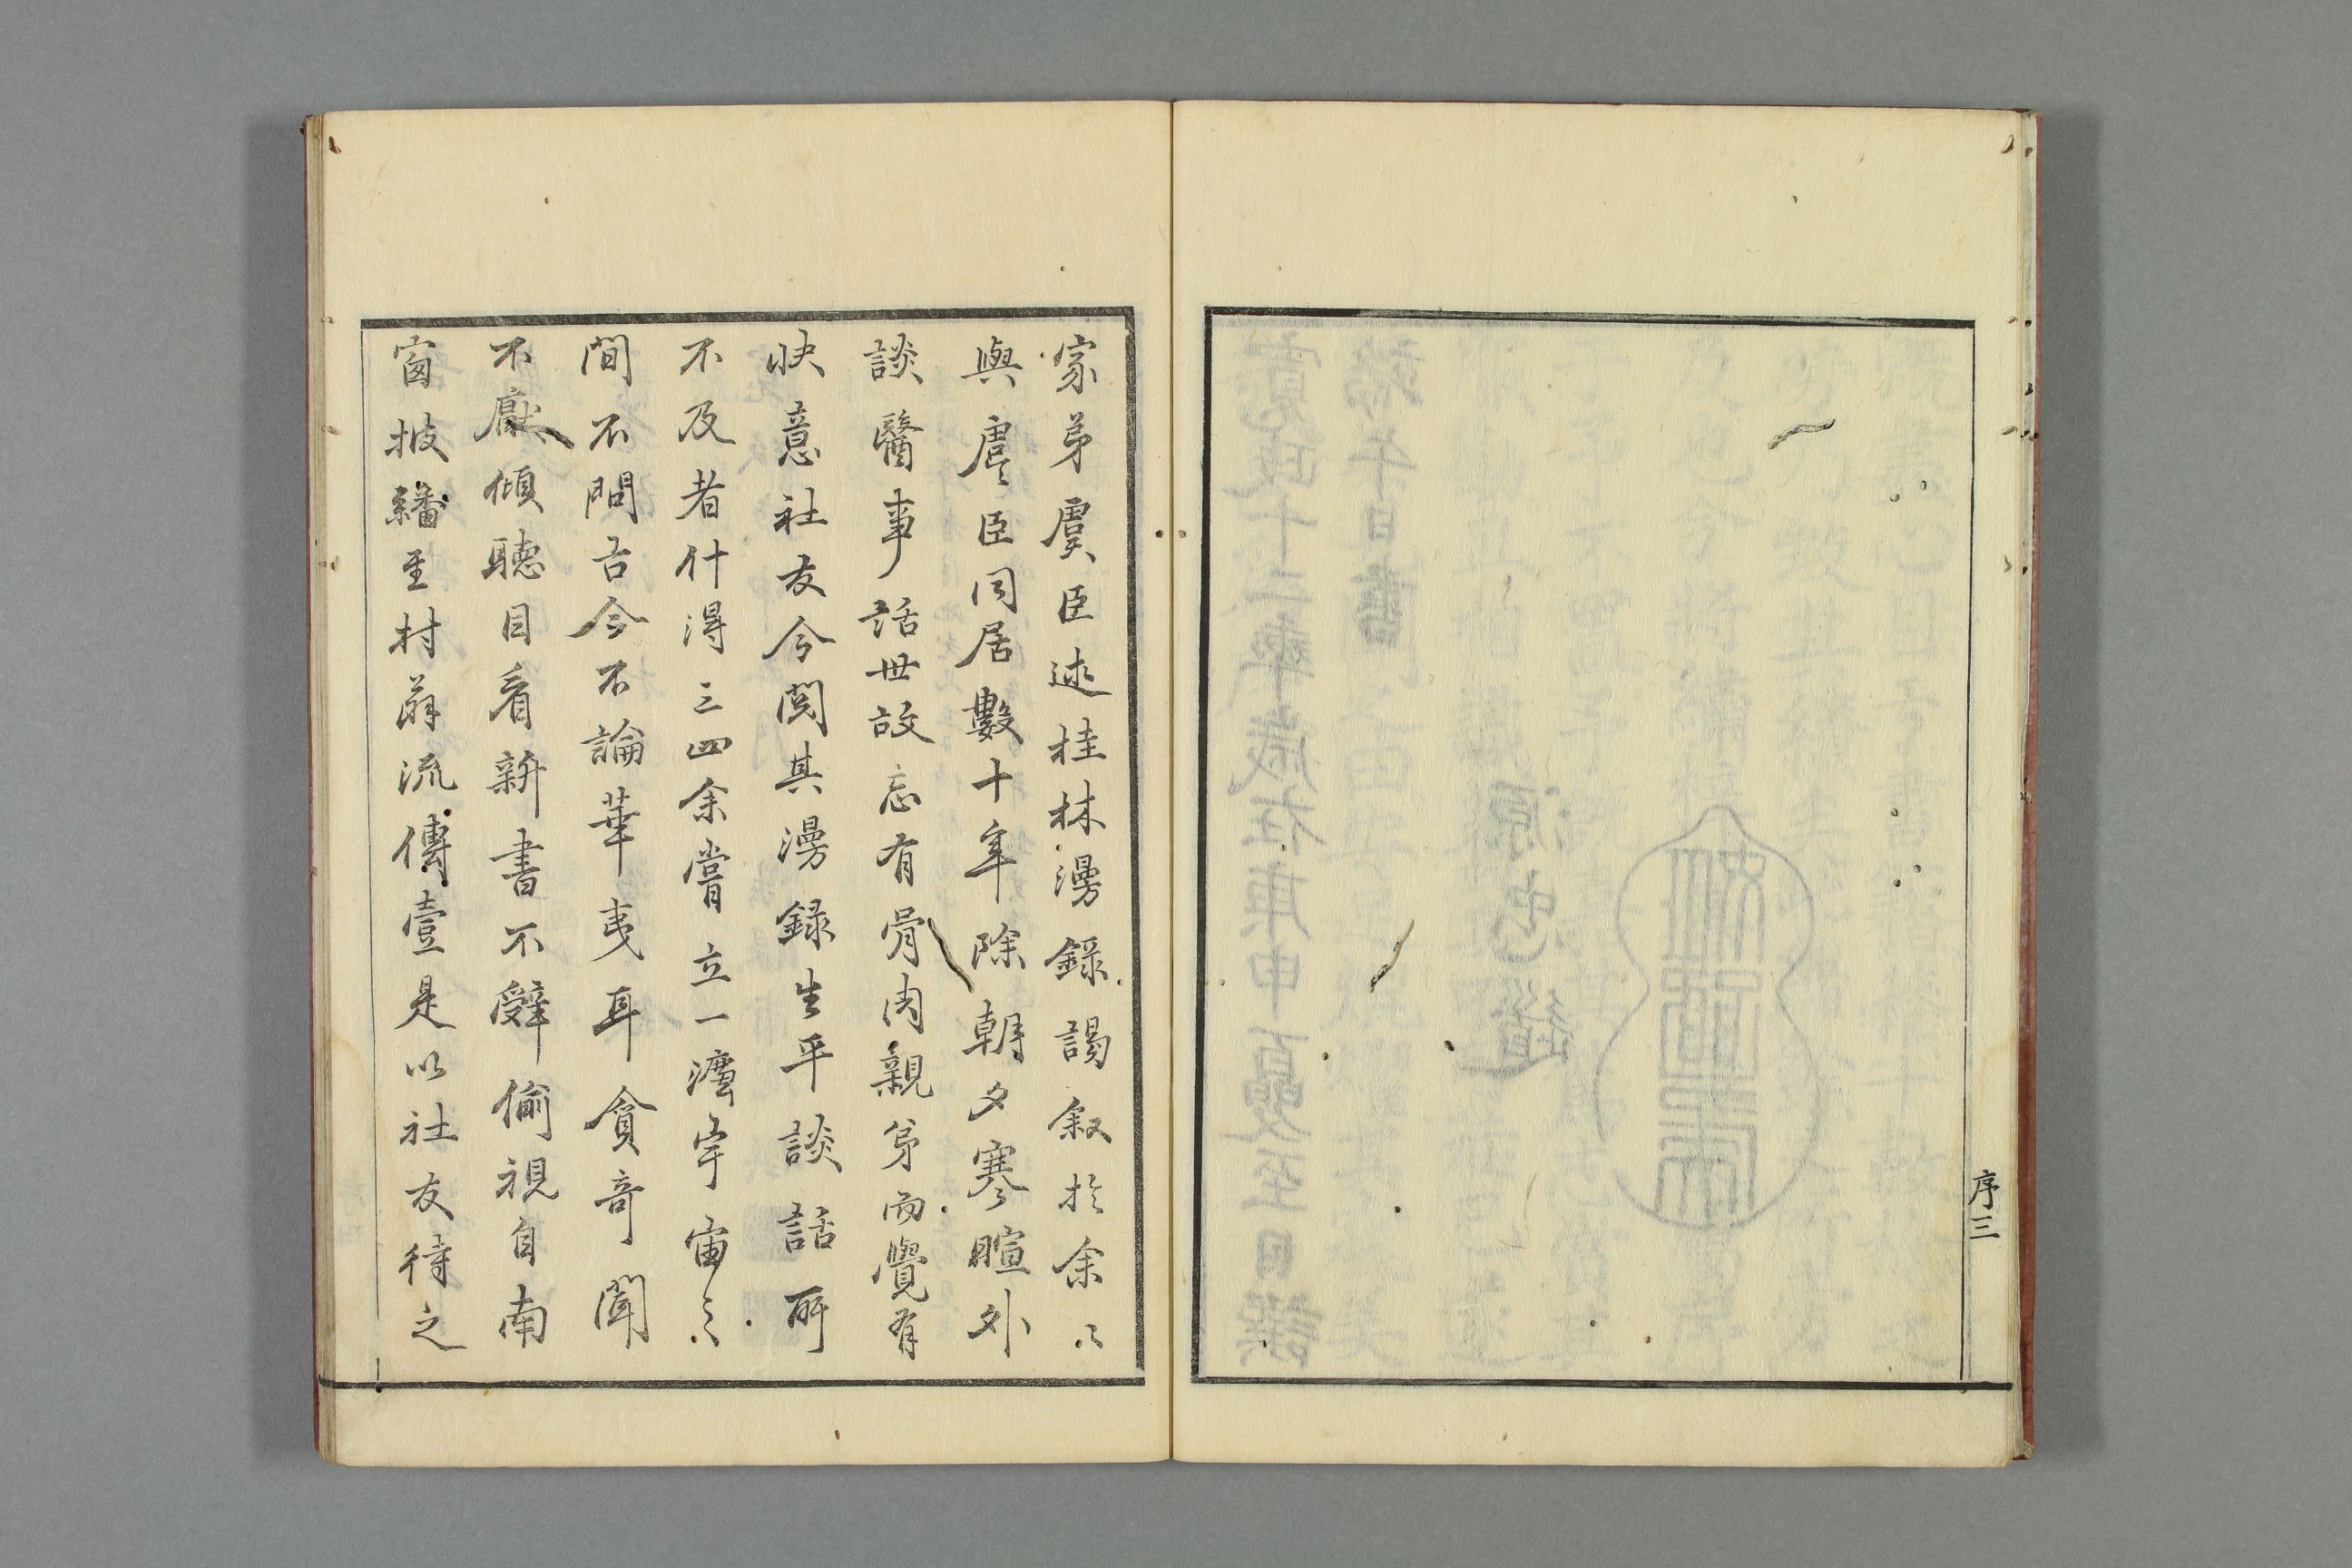 序三
家弟虞臣述桂林漫録謁叙於余々
與虞臣同居數十年除朝夕寒暄外
談醫事話世故忘有骨肉親弟而覺有
快意社友今閲其漫録生平談話所
不及者什得三四余嘗立一瀍宇宙之
間不問古今不論華夷耳貪奇聞
不厭傾聴目看新書不辞偷視自南
窗披繙至村 流傳壹是以社友待之